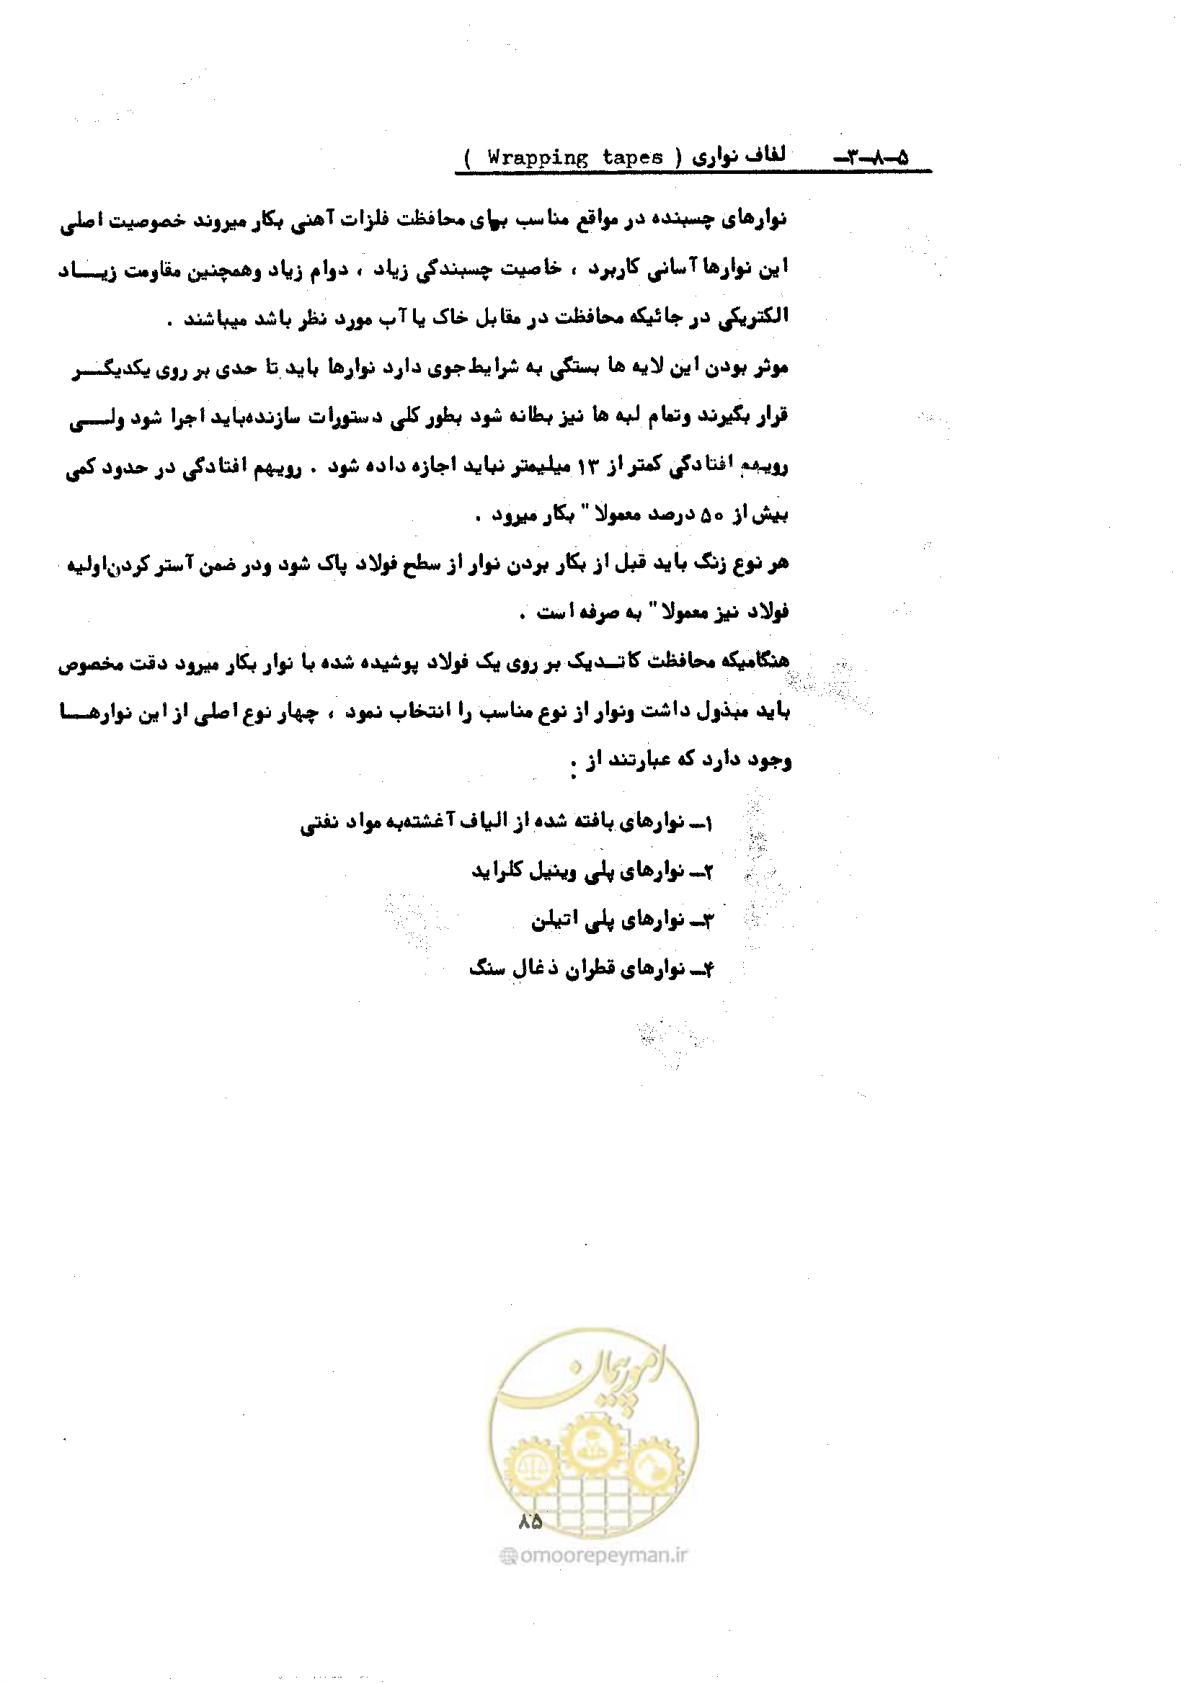 ۵-۸-۳- لفاف نواری ( Wrapping tapes )
نوارهای چسبنده در مواقع مناسب برای محافظت فلزات آهنی بکار میروند خصوصیت اصلی
این نوارها آسانی کاربرد ، خاصیت چسبندگی زیاد ، دوام زیاد وهمچنین مقاومت زیـــاد
الکتریکی در جائیکه محافظت در مقابل خاک یا آب مورد نظر باشد میباشند .
موثر بودن این لایه ها بستگی به شرایط جوی دارد نوارها باید تا حدی بر روی یکدیگـــر
قرار بگیرند وتمام لبه ها نیز بطانه شود بطور کلی دستورات سازنده باید اجرا شود ولـــی
رویهم افتادگی کمتر از ۱۳ میلیمتر نباید اجازه داده شود . رویهم افتادگی در حدود کمی
بیش از ۵۰ درصد معمولا" بکار میرود .
هر نوع زنگ باید قبل از بکار بردن نوار از سطح فولاد پاک شود ودر ضمن آستر کردن اولیه
فولاد نیز معمولا" به صرفه است .
هنگامیکه محافظت کاتـدیک بر روی یک فولاد پوشیده شده با نوار بکار میرود دقت مخصوص
باید مبذول داشت ونوار از نوع مناسب را انتخاب نمود ، چهار نوع اصلی از این نوارهـــا
وجود دارد که عبارتند از :
۱- نوارهای بافته شده از الیاف آغشته به مواد نفتی
۲- نوارهای پلی وینیل کلراید
۳- نوارهای پلی اتیلن
۴- نوارهای قطران ذغال سنگ
امور پیمان
۸۵
@omoorepeyman.ir